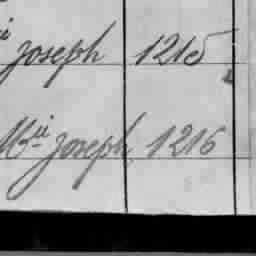 Joseph 1215
Mii Joseph 1216